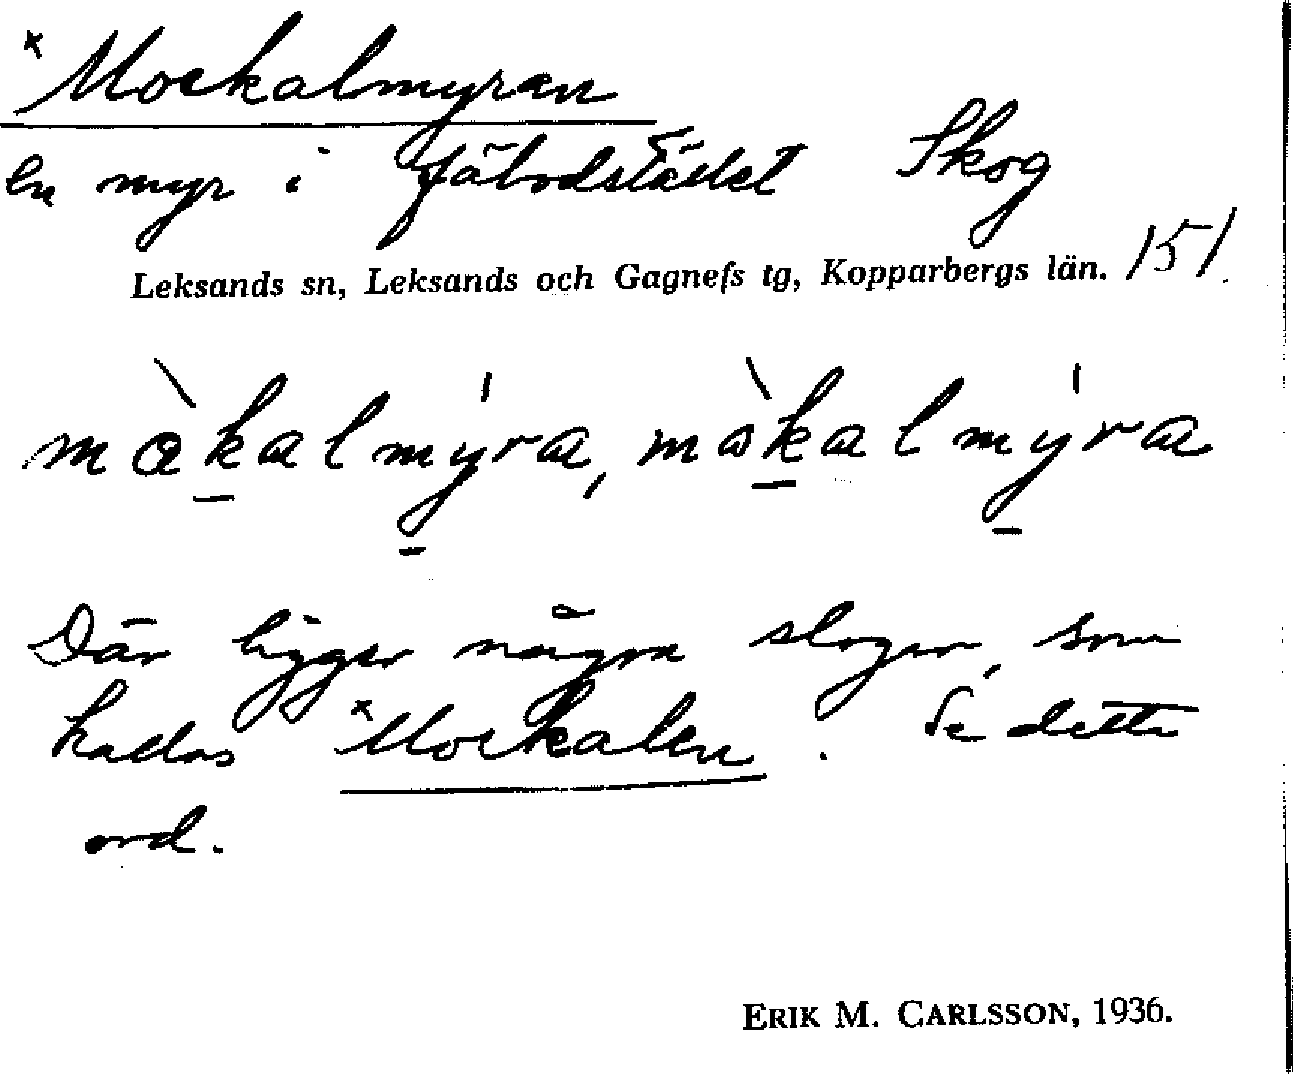 *Mockalmyran
en myr i fäbodstället Skog
Leksands sn, Leksands och Gagnefs tg, Kopparbergs län. 151.
mòkalmýra, mòkalmýra
Där ligger några slogar, som
kallas *Mockalen. Se detta
ord.
ERIK M. CARLSSON, 1936.